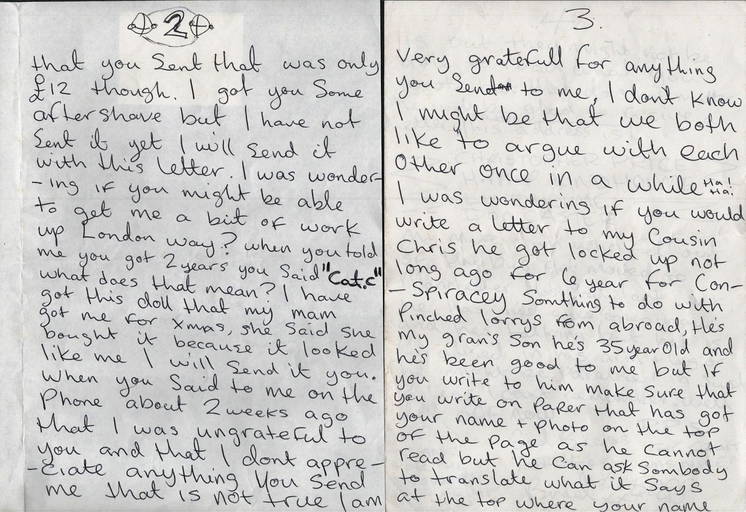 2
that you Sent that was only
£12 though. I got you Some
aftershave but I have not
Sent it yet I will Send it
with this letter. I was wonder-
-ing if you might be able
to get me a bit of work
up London way? when you told
me you got 2 years you Said "Cat.c"
what does that mean? I have
got this doll that my mam
got me for xmas, she Said she
bought it because it looked
like me I will Send it you.
When you Said to me on the
Phone about 2 weeks ago
that I was ungrateful to
you and that I dont appre-
-ciate anything You Send
me that is not true I am
3.
Very gratefull for anything
you Send to me, I don't know
I might be that we both
like to argue with each
Other once in a while Ha! Ha!
I was wondering if you would
write a letter to my Cousin
Chris he got locked up not
long ago for 6 year for Con-
-Spiracey Somthing to do with
Pinched lorrys from abroad, He's
my gran's Son he's 35 year old and
he's been good to me but If
you write to him make Sure that
you write on Paper that has got
your name + photo on the top
of the page as he cannot
read but he can ask Sombody
to translate what it Says
at the top where your name